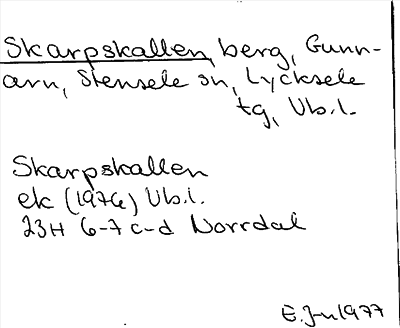 Skarpskallen, berg, Gunn-
arn, Stensele sn, Lycksele
tg, Vb.l.
Skarpskallen
ek (1976) Vb.l.
23H 6-7 c-d Norrdal
1977